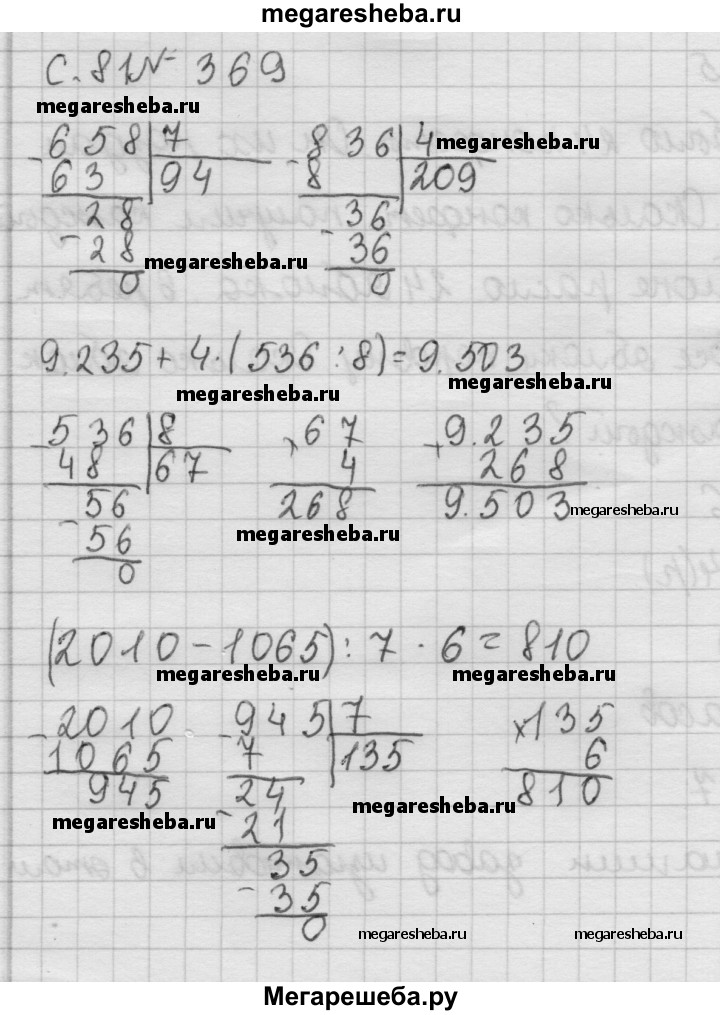 megaresheba.ru
С. 81 № 369
megaresheba.ru
658 | 7   836 | 4 megaresheba.ru
- 63 | 94   - 8 | 209
28   36
- 28   - 36
0 megaresheba.ru   0
9.235 + 4 · (536 : 8) = 9.503
megaresheba.ru   megaresheba.ru
- 536 | 8   × 67   + 9.235
48 | 67   4   268
56   268   9.503 megaresheba.ru
- 56   megaresheba.ru
0
(2010 - 1065) : 7 · 6 = 810
megaresheba.ru   megaresheba.ru
- 2010   - 945 | 7   × 135
1065   7 | 135   6
945   24   810
megaresheba.ru   - 21   megaresheba.ru
35
- 35
0   megaresheba.ru   megaresheba.ru
Мегарешеба.ру